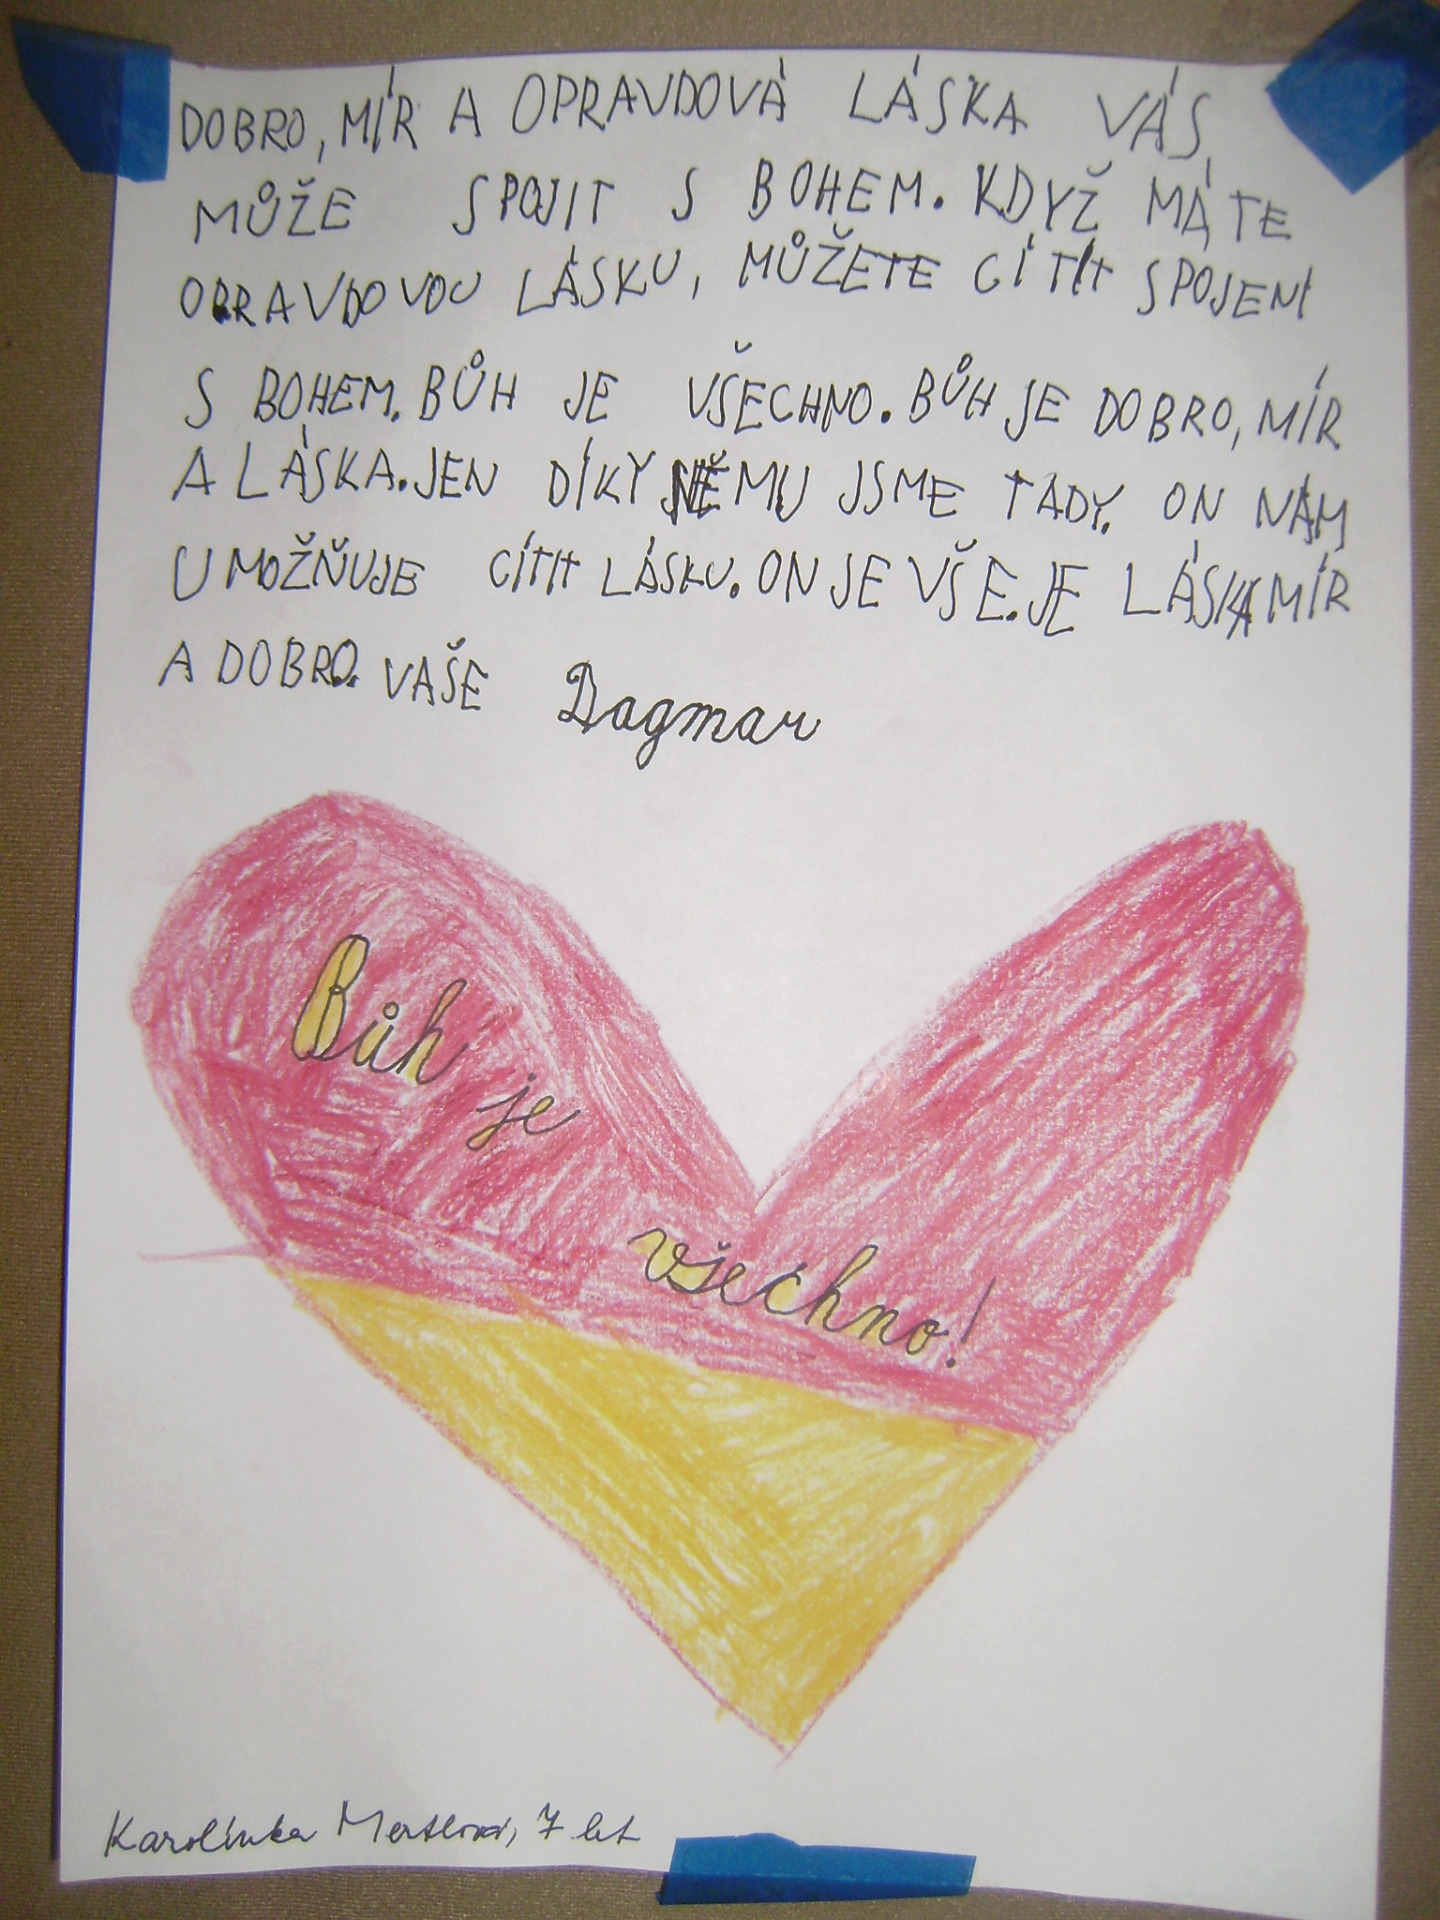 DOBRO, MÍR A OPRAVDOVÁ LÁSKA VÁS
MŮŽE SPOJIT S BOHEM. KDYŽ MÁTE
OPRAVDOVOU LÁSKU, MŮŽETE CÍTIT SPOJENÍ
S BOHEM. BŮH JE VŠECHNO. BŮH JE DOBRO, MÍR
A LÁSKA. JEN DÍKY NĚMU JSME TADY. ON NÁM
UMOŽŇUJE CÍTIT LÁSKU. ON JE VŠE. JE LÁSKA MÍR
A DOBRO. VAŠE Dagmar
Bůh je
všechno!
Karolínka 7 let